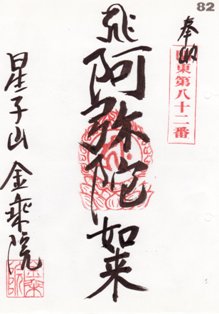 82
奉納
関東第八十二番
阿弥陀如来
星子山 金乗院